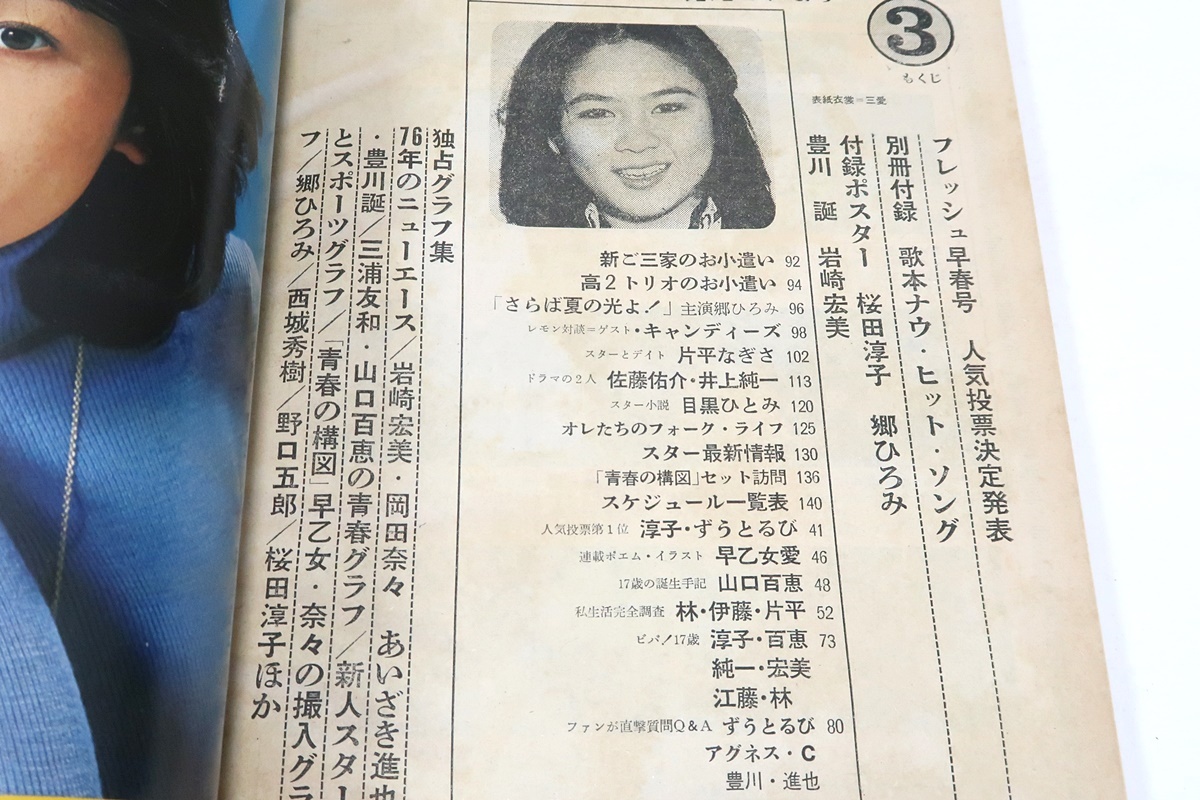 3
もくじ
表紙衣裳=三愛
フレッシュ早春号 人気投票決定発表
別冊付録 歌本ナウ・ヒット・ソング
付録ポスター 桜田淳子 郷ひろみ
豊川 誕 岩崎宏美
新ご三家のお小遣い 92
高2トリオのお小遣い 94
「さらば夏の光よ!」主演郷ひろみ 96
レモン対談=ゲスト・キャンディーズ 98
スターとデイト 片平なぎさ 102
ドラマの2人 佐藤佑介・井上純一 113
スター小説 目黒ひとみ 120
オレたちのフォーク・ライフ 125
スター最新情報 130
「青春の構図」セット訪問 136
スケジュール一覧表 140
人気投票第1位 淳子・ずうとるび 41
連載ポエム・イラスト 早乙女愛 46
17歳の誕生手記 山口百恵 48
私生活完全調査 林・伊藤・片平 52
ビバ!17歳 淳子・百恵 73
純一・宏美
江藤・林
ファンが直撃質問Q&A ずうとるび 80
アグネス・C
豊川・進也
独占グラフ集
76年のニューエース/岩崎宏美・岡田奈々 あいざき進也
・豊川誕/三浦友和・山口百恵の青春グラフ/新人スター
とスポーツグラフ/「青春の構図」早乙女・奈々の撮入グラ
フ/郷ひろみ/西城秀樹/野口五郎/桜田淳子ほか